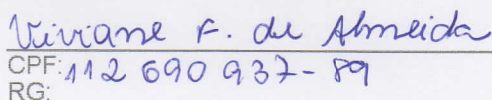 Viviane F. de Almeida
CPF: 112 690 937-89
RG: